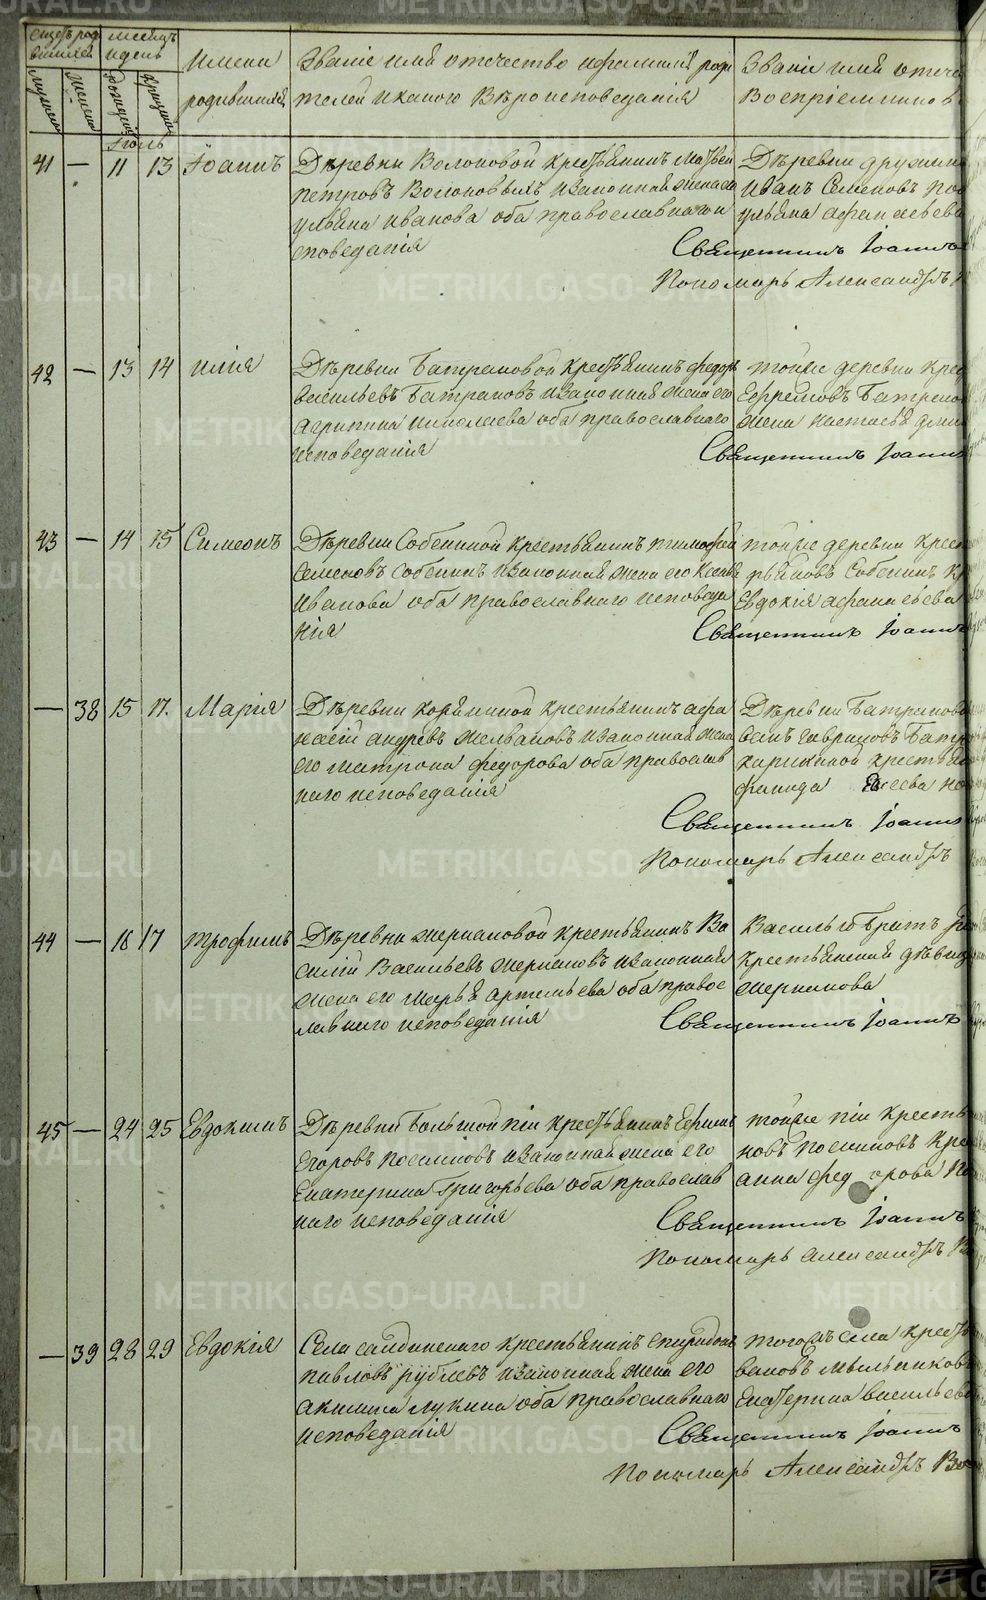 METRIKI.GASO-URAL.RU
Счетъ родившихся
Мѣсяцъ и день
Имена родившихся
Званіе имя отечество и фамилія роди
телей и какого Вѣроисповеданія
Званіе имя отече
Воспріемников
Мужеска
Женска
рожденія
крещенія
Іюль
41 — 11 13 Іоаннъ
Дѣревни Волоковой крестьянинъ Матвей
петровъ Волоковыхъ и законная жена ево
ульяна иванова оба православнаго и
споведанія
Дѣревни дружини
иванъ Семеновъ Поп
ульяна афанасьева
Священникъ Іоаннъ
Пономарь Александръ
42 — 13 14 илія
Дѣревни Батраковой крестьянинъ федоръ
васильевъ Батраковъ и законная жена его
Агрипина николаева оба православнаго
исповеданія
тойже деревни крес
Ефремовъ Батраков
жена настасья дми
Священникъ Іоаннъ
43 — 14 15 Симеонъ
Дѣревни Собениной крестьянинъ тимофей
Семеновъ Собенинъ и законная жена его Ксенья
Иванова оба православнаго исповеда
нія
тойже деревни крест
рьяновъ Собенинъ кр
Евдокія афанасьева
Священникъ Іоаннъ
— 38 15 17. Марія
Дѣревни корякиной крестьянинъ афа
насій андревъ желваковъ и законная жена
его матрона федорова оба православ
наго исповеданія
Дѣревни Батраково
Гавриловъ Батр
карякиной крестьян
Священникъ Іоаннъ
Пономарь Александръ
44 — 16 17 трофимъ
Дѣревни мериановой крестьянинъ Ва
силій Васильевъ мериановъ и законная
жена его марья артемьева оба правос
лавнаго исповеданія
Василья братъ
крестьянская дѣвица
мерианова
Священникъ Іоаннъ
45 — 24 25 Евдокимъ
Дѣревни Большой піи крестьянинъ Ефимъ
Егоровъ Посниковъ и законная жена его
Екатерина Григорьева оба православ
наго исповеданія
тойже піи кресть
новъ посниковъ кре
анна федорова
Священникъ Іоаннъ
Пономарь александръ
— 39 28 29 Евдокія
Села салдинскаго крестьянинъ спиридонъ
павловъ рублевъ и законная жена его
акилина лукина оба православнаго
исповеданія
тогожъ села крест
вановъ мыльников
Екатерина васильев
Священникъ Іоаннъ
Пономарь Александръ